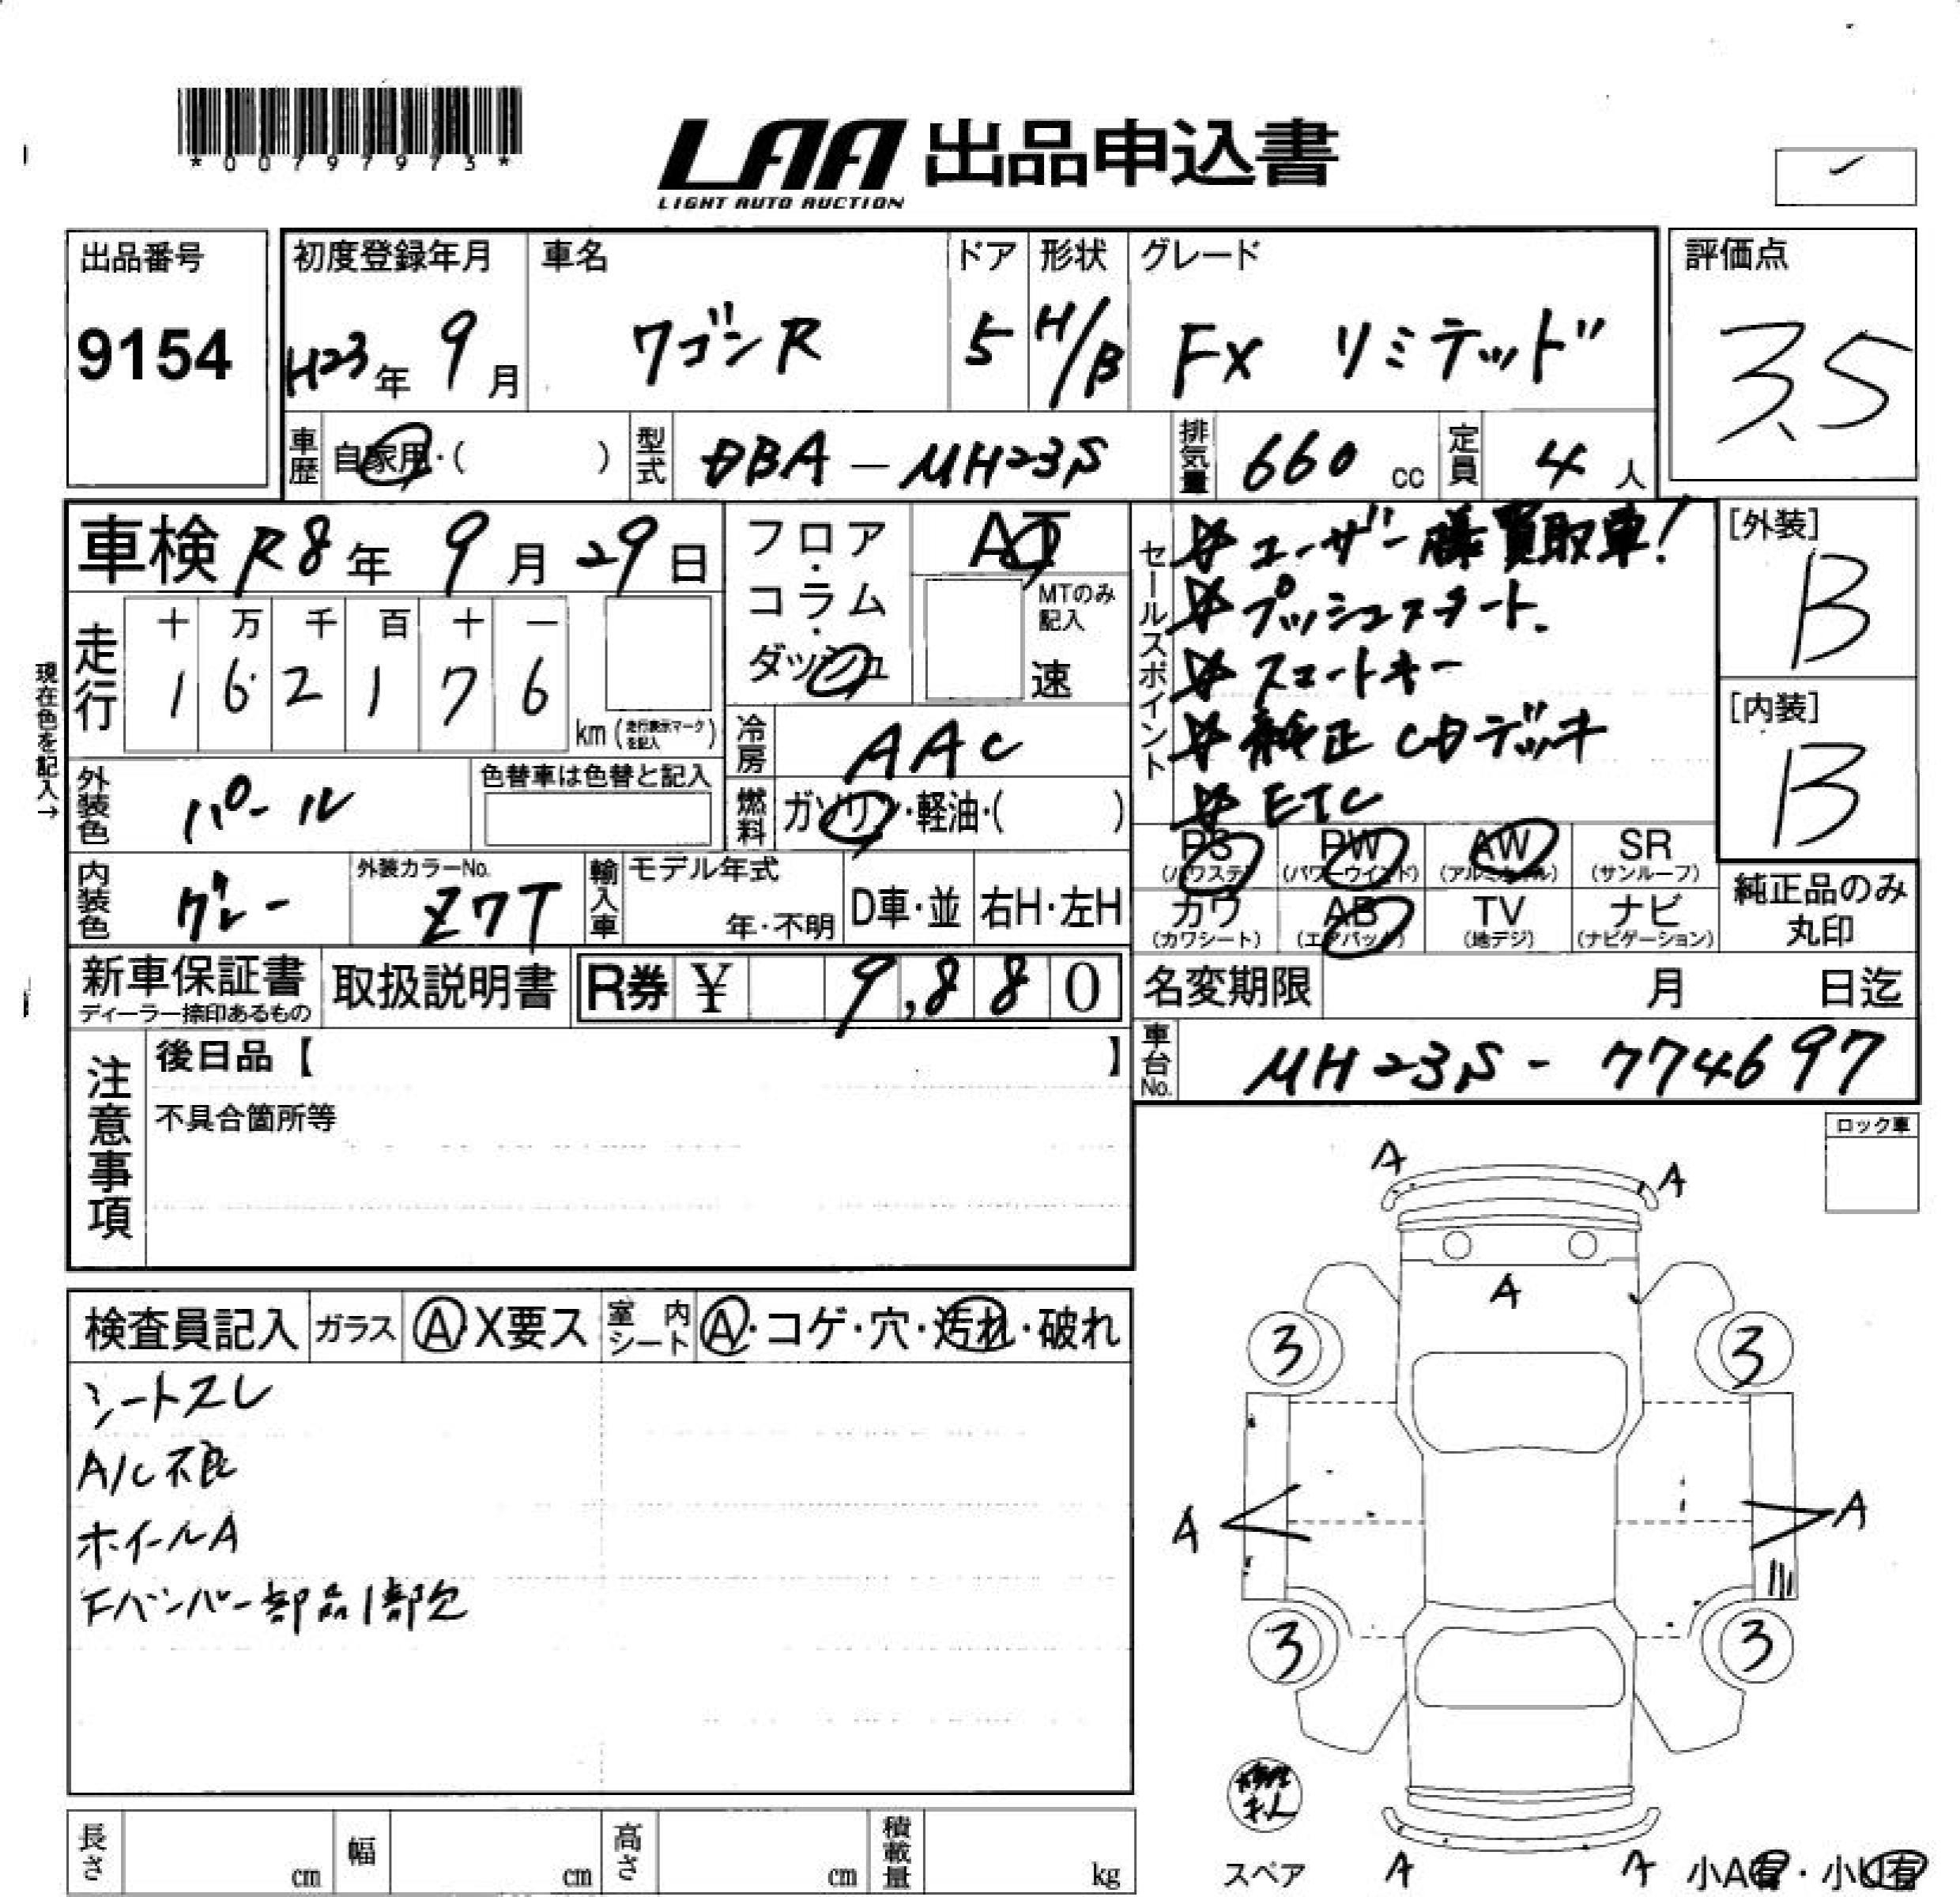 *00797973*
LAA 出品申込書
LIGHT AUTO AUCTION
出品番号
9154
初度登録年月
H23年 9月
車名
ワゴンR
ドア
5
形状
H/B
グレード
FX リミテッド
評価点
3.5
車歴 自家用・( )
型式 DBA-MH23S
排気量 660 cc
定員 4人
車検 R8年 9月 29日
フロア・コラム・ダッシュ
AT
MTのみ記入
速
現在色を記入→
走行
十 万 千 百 十 一
1 6 2 1 7 6
km (走行表示マークを記入)
冷房 AAC
外装色 パール
色替車は色替と記入
燃料 ガソリン・軽油・( )
内装色 グレー
外装カラーNo.
Z7T
輸入車
モデル年式
年・不明
D車・並
右H・左H
セールスポイント
ユーザー様買取車!
プッシュスタート.
スマートキー
純正CDデッキ
ETC
[外装]
B
[内装]
B
PS (パワステ)
PW (パワーウインド)
AW (アルミホイル)
SR (サンルーフ)
カワ (カワシート)
AB (エアバッグ)
TV (地デジ)
ナビ (ナビゲーション)
純正品のみ
丸印
新車保証書
ディーラー捺印あるもの
取扱説明書
R券 ¥ 9,880
名変期限 月 日迄
車台No. MH23S-774697
注意事項
後日品【 】
不具合箇所等
ロック車
検査員記入
ガラス A・X要ス
室内シート A・コゲ・穴・汚れ・破れ
シートスレ
A/C不良
ホイールA
Fバンパー部品1部欠
A A
A
3 3
A A
3 3
A A
スペア
小A有・小U有
長さ cm
幅 cm
高さ cm
積載量 kg